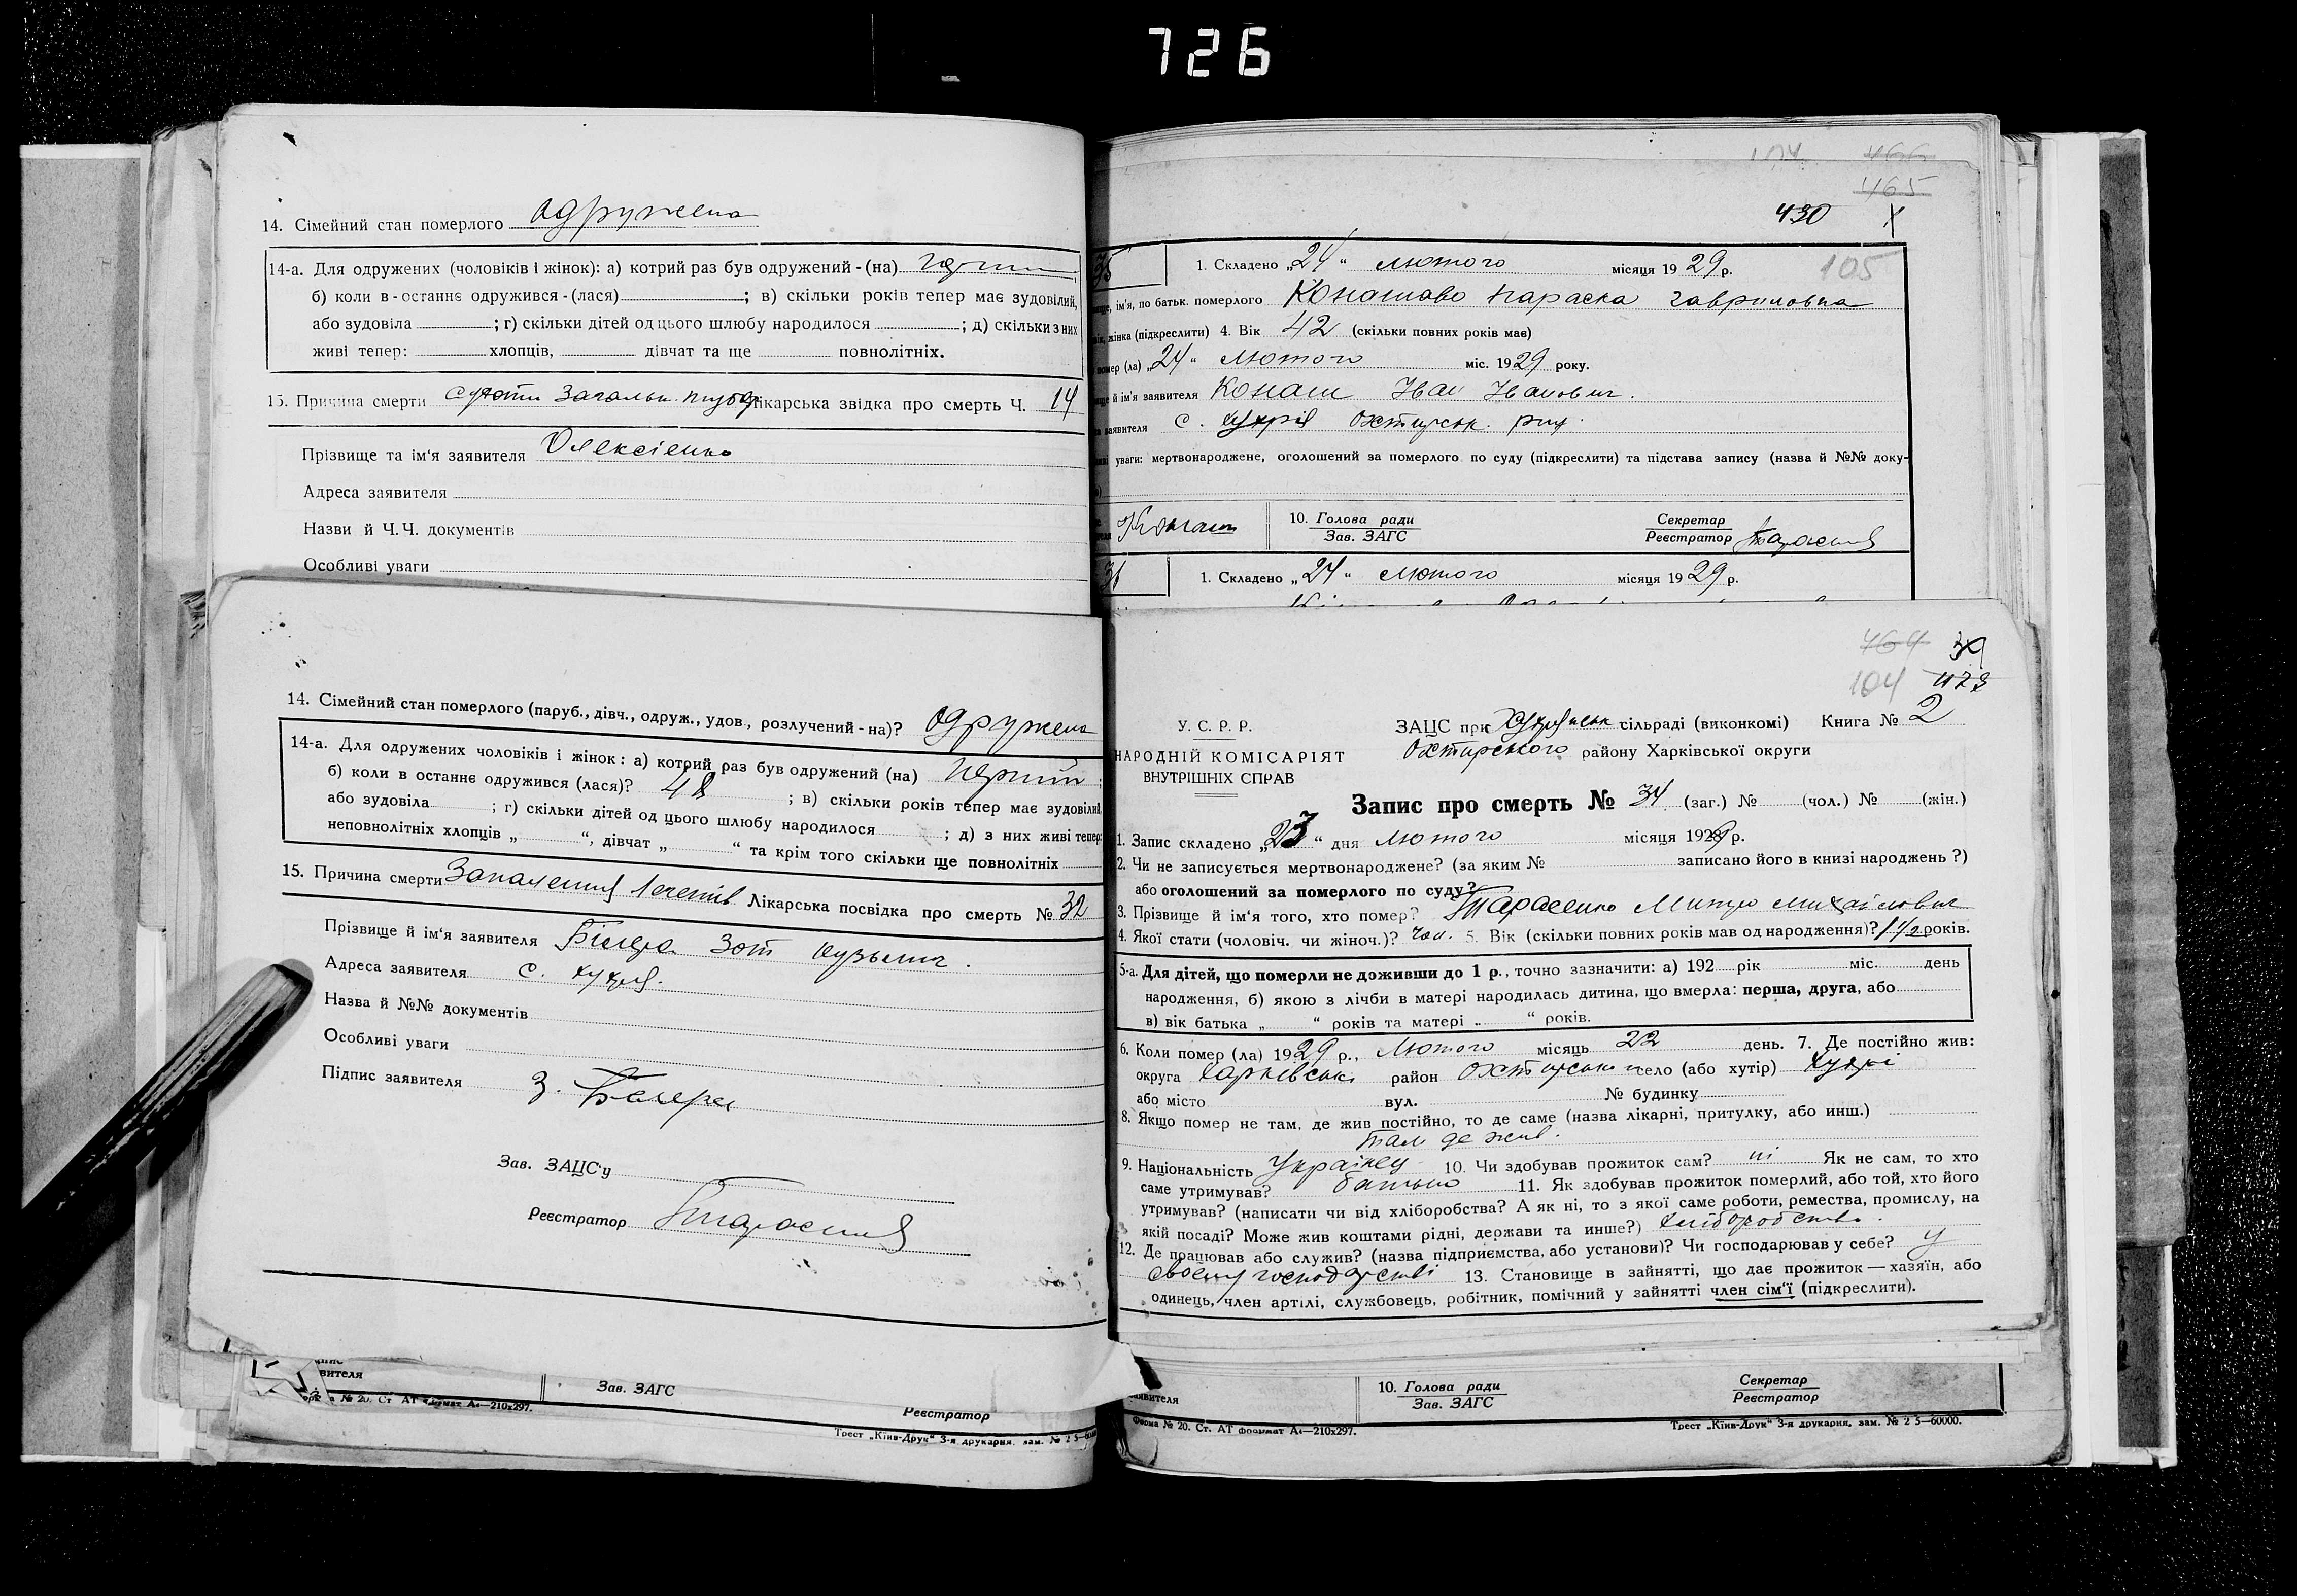 726
14. Сімейний стан померлого одружена
14-а. Для одружених (чоловіків і жінок): а) котрий раз був одружений - (на)
б) коли в - останнє одружився - (лася) ; в) скільки років тепер має зудовілий,
або зудовіла ; г) скільки дітей од цього шлюбу народилося ; д) скільки з них
живі тепер: хлопців, дівчат та ще повнолітніх.
15. Причина смерти лікарська звідка про смерть Ч. 14
Прізвище та ім'я заявителя Олексієнко
Адреса заявителя
Назви й Ч.Ч. документів
Особливі уваги
14. Сімейний стан померлого (паруб., дівч., одруж., удов., розлучений - на)? Одружена
14-а. Для одружених чоловіків і жінок: а) котрий раз був одружений (на) перший ;
б) коли в останнє одружився (лася)? 48 ; в) скільки років тепер має зудовілий
або зудовіла ; г) скільки дітей од цього шлюбу народилося ; д) з них живі тепер:
неповнолітніх хлопців „ “, дівчат „ “ та крім того скільки ще повнолітніх
15. Причина смерти Запалення легенів Лікарська посвідка про смерть № 32
Прізвище й ім'я заявителя Білера Зот Кузьмич.
Адреса заявителя с. Кукрія.
Назва й №№ документів
Особливі уваги
Підпис заявителя З. Білера
Зав. ЗАЦС'у
Реєстратор
вителя
Зав. ЗАГС
№ 20. Ст АТ формат А4—210х297.
Реєстратор
Трест „Київ-Друк“ 3-я друкарня, зам. № 2 5—60000
104 466
465
430 X
35 1. Складено „24“ лютого місяця 1929 р. 105
ім'я, по батьк. померлого Конашова Параска Гавриловна
жінка (підкреслити) 4. Вік 42 (скільки повних років має)
помер (ла) „24“ лютого міс. 1929 року.
й ім'я заявителя Конаш Іван Іванович.
заявителя с. Кукрія Охтирськ. рну.
уваги: мертвонароджене, оголошений за померлого по суду (підкреслити) та підстава запису (назва й №№ доку-
Конаш 10. Голова ради
Зав. ЗАГС
Секретар
Реєстратор
36 1. Складено „24“ лютого місяця 1929 р.
464 39
104 473
У. С. Р. Р.
НАРОДНІЙ КОМІСАРІЯТ
ВНУТРІШНІХ СПРАВ
ЗАЦС при сільраді (виконкомі) Книга № 2
Охтирського району Харківської округи
Запис про смерть № 34 (заг.) № (чол.) № (жін.)
1. Запис складено „23“ дня лютого місяця 1929 р.
2. Чи не записується мертвонароджене? (за яким № записано його в книзі народжень?)
або оголошений за померлого по суду?
3. Прізвище й ім'я того, хто помер? Тарасенко Митро Михайлович
4. Якої стати (чоловіч. чи жіноч.)? чол. 5. Вік (скільки повних років мав од народження)? 1½ років.
5-а. Для дітей, що померли не доживши до 1 р., точно зазначити: а) 192 рік міс. день
народження, б) якою з лічби в матері народилась дитина, що вмерла: перша, друга, або
в) вік батька „ “ років та матері „ “ років.
6. Коли помер (ла) 1929 р., лютого місяць 22 день. 7. Де постійно жив:
округа Харківська район Охтирський село (або хутір) Кукрі
або місто вул. № будинку
8. Якщо помер не там, де жив постійно, то де саме (назва лікарні, притулку, або инш.)
там де жив.
9. Національність Українец 10. Чи здобував прожиток сам? ні Як не сам, то хто
саме утримував? батько 11. Як здобував прожиток померлий, або той, хто його
утримував? (написати чи від хліборобства? А як ні, то з якої саме роботи, ремества, промислу, на
якій посаді? Може жив коштами рідні, держави та инше?) хліборобство.
12. Де працював або служив? (назва підприємства, або установи)? Чи господарював у себе? у
своєму господарстві 13. Становище в зайнятті, що дає прожиток — хазяїн, або
одинець, член артілі, службовець, робітник, помічний у зайнятті член сім'ї (підкреслити).
заявителя
10. Голова ради
Зав. ЗАГС
Секретар
Реєстратор
Форма № 20. Ст. АТ формат А4—210х297.
Трест „Київ-Друк“ 3-я друкарня, зам. № 2 5—60000.